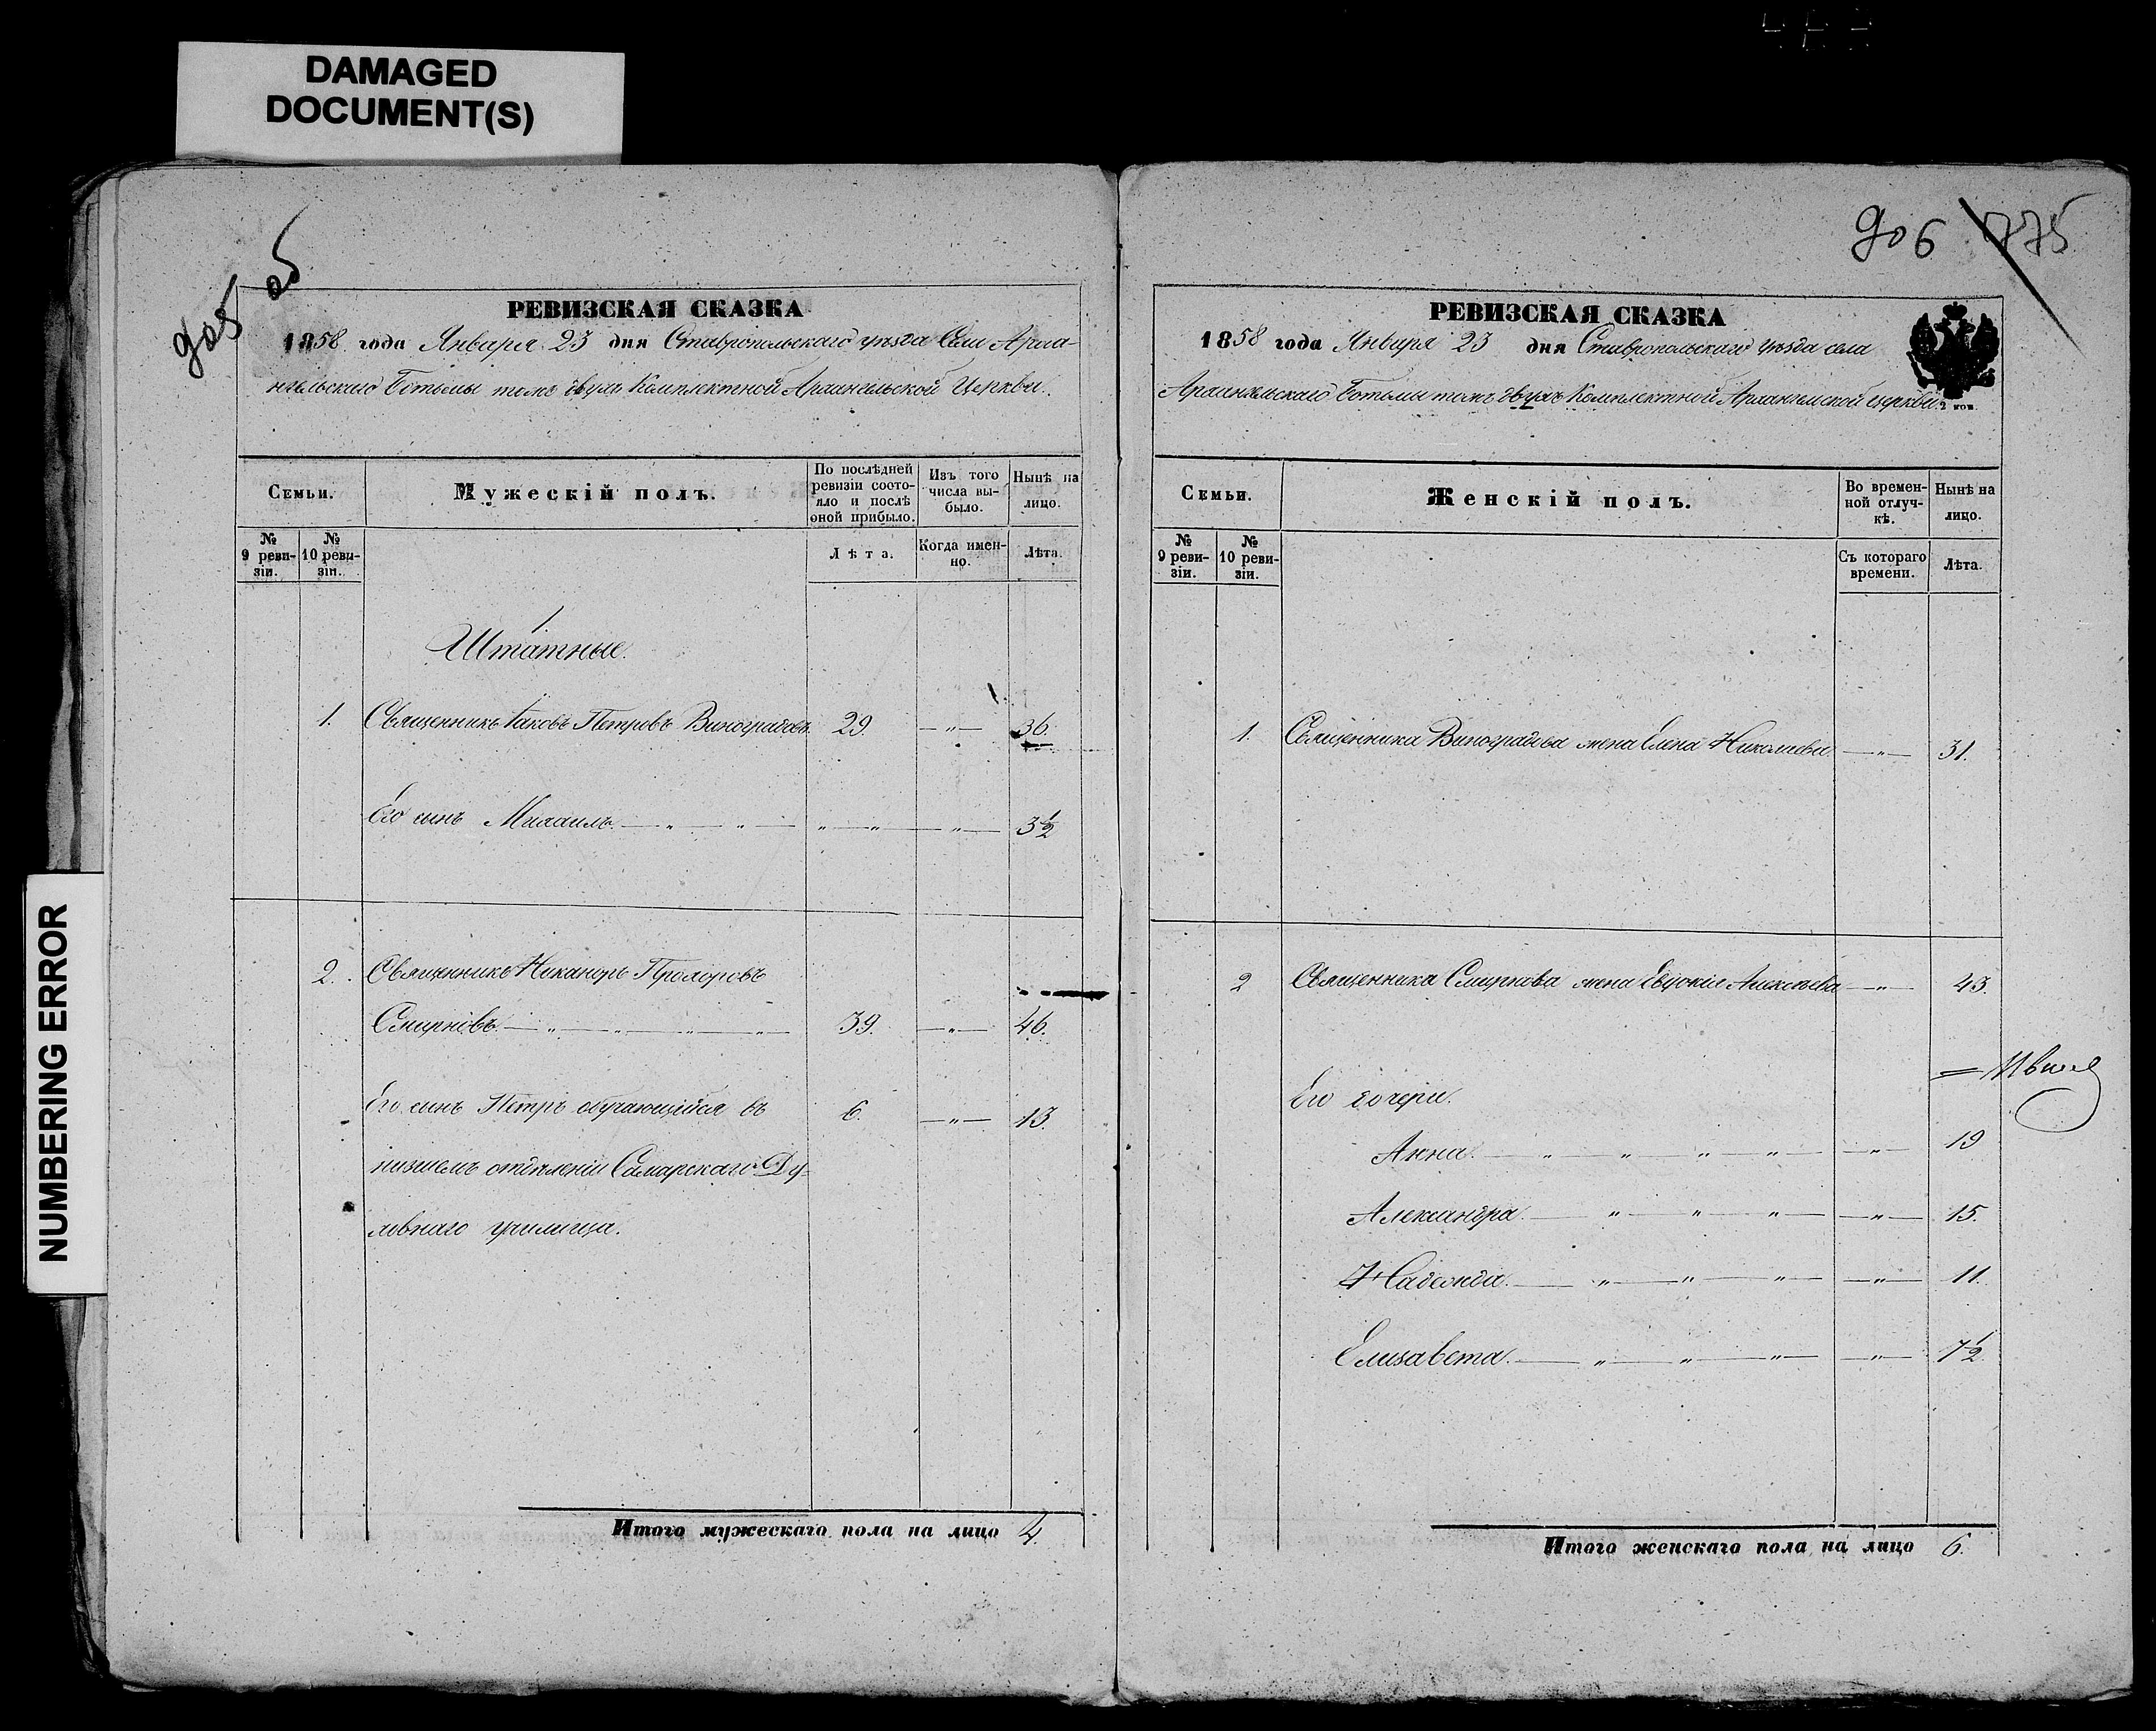 DAMAGED
DOCUMENT(S)
NUMBERING ERROR
905 об
РЕВИЗСКАЯ СКАЗКА
1858 года Января 23 дня Ставропольскаго уѣзда Села Арха-
нгельскаго тожъ двухъ Комплектной Архангельской Церкви.
Семьи.
Мужескій полъ.
По послѣдней ревизіи состо-
яло и послѣ оной прибыло.
Изъ того числа вы-
было.
Нынѣ на лицо.
№ 9 реви-
зіи.
№ 10 реви-
зіи.
Лѣта.
Когда имен-
но.
Лѣта.
Штатные.
1. Священникъ Іаковъ Петровъ Виноградовъ. 29. —„— 36.
Его сынъ Михаилъ. —„—„— „—„ —„— 3½
2. Священникъ Никаноръ Прохоровъ
Смирновъ. —„—„—„—„— 39. —„— 46.
Его сынъ Петръ обучающійся въ 6. —„— 13.
низшемъ отдѣленіи Самарскаго Ду-
ховнаго училища.
Итого мужескаго пола на лицо 4.
906 775
РЕВИЗСКАЯ СКАЗКА
1858 года Января 23 дня Ставропольскаго уѣзда села
Архангельскаго тожъ двухъ Комплектной Архангельской церкви.
2 коп.
Семьи.
Женскій полъ.
Во времен-
ной отлуч-
кѣ.
Нынѣ на лицо.
№ 9 реви-
зіи.
№ 10 реви-
зіи.
Съ котораго времени.
Лѣта.
1. Священника Виноградова жена Елена Николаева —„— 31.
2 Священника Смирнова жена Евдокія Алексѣева —„— 43.
Его дочери.
Анна. —„—„—„—„— —„— 19
Александра. —„—„—„— —„— 15.
Надежда. —„—„—„— —„— 11.
Елизавета. —„—„—„— —„— 7½
Итого женскаго пола на лицо 6.